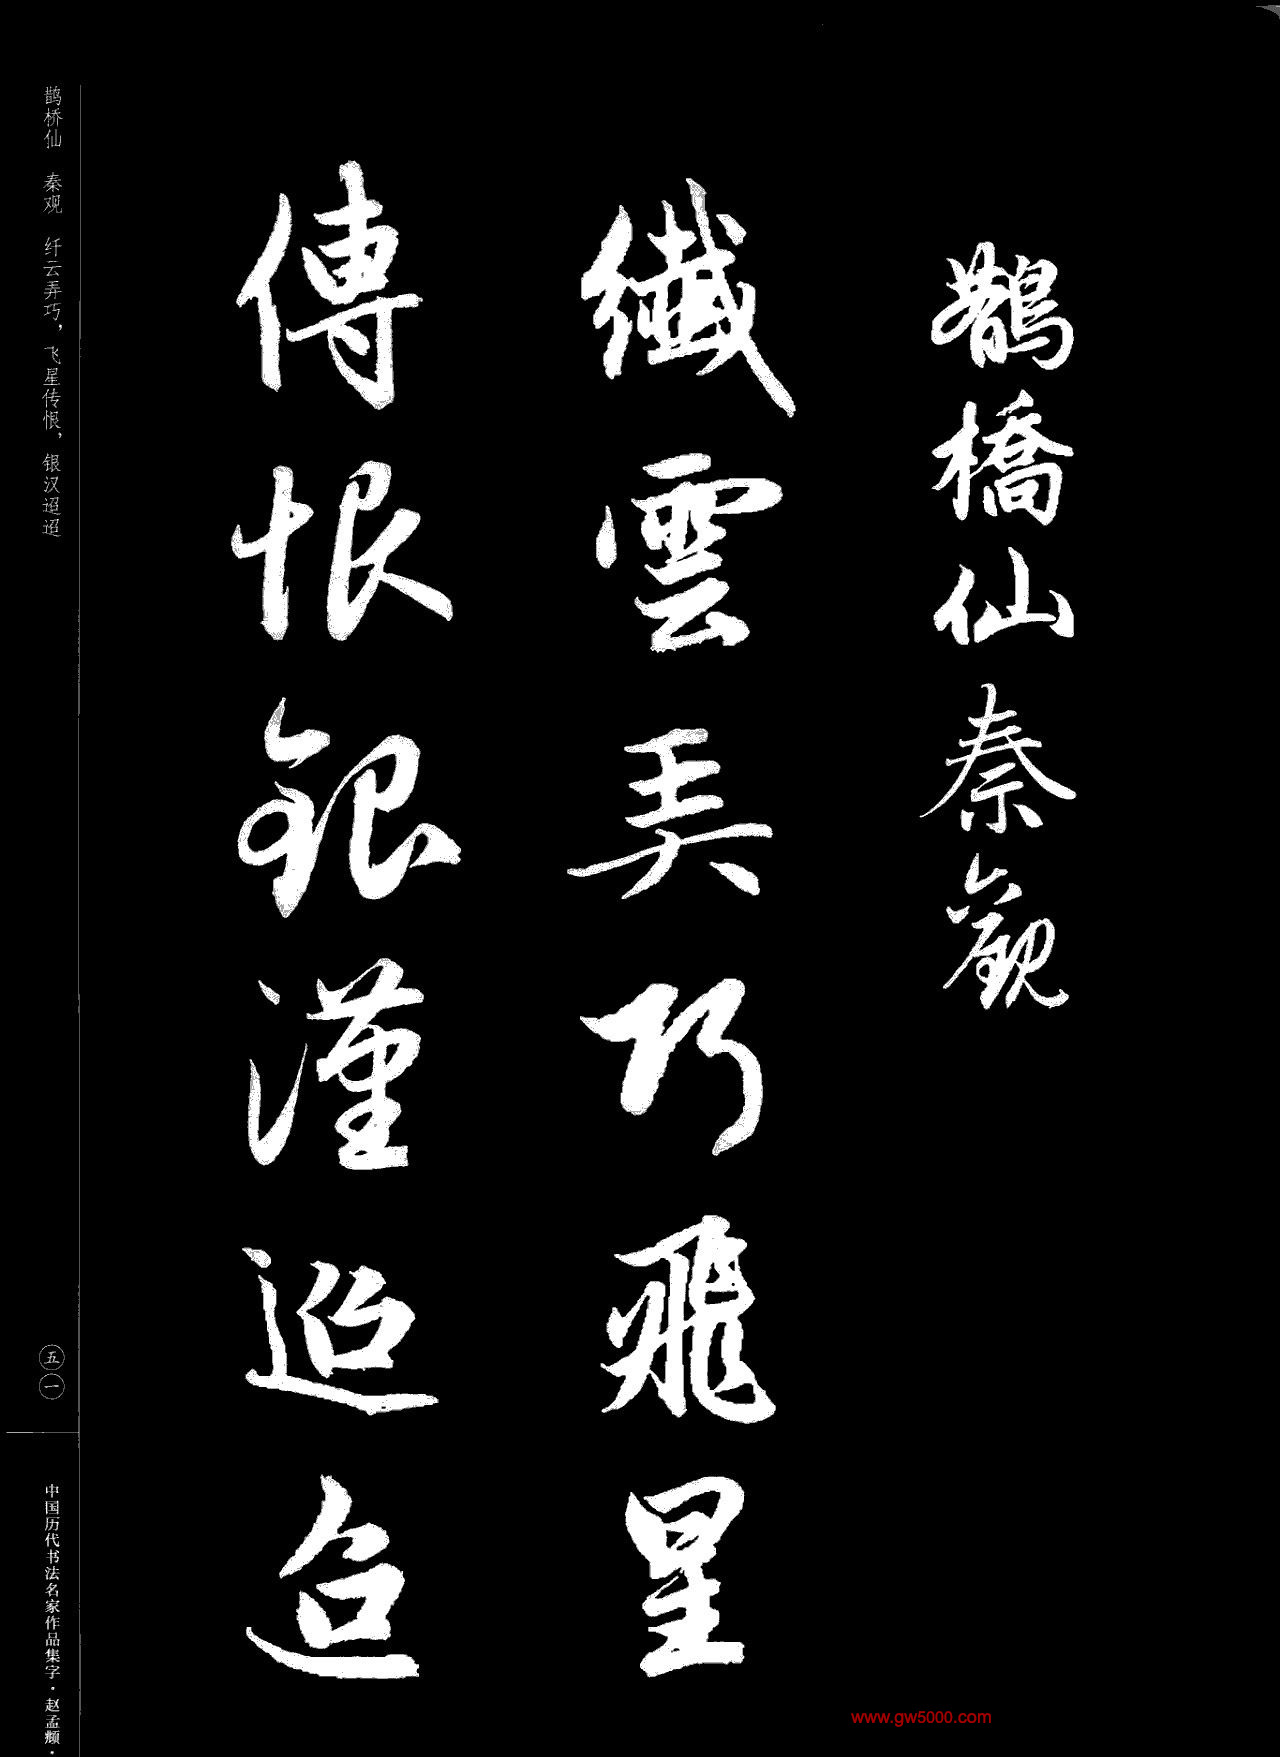 鵲橋仙秦觀
纖雲弄巧飛星
傳恨銀漢迢迢
鹊桥仙 秦观 纤云弄巧，飞星传恨，银汉迢迢
五一
中国历代书法名家作品集字·赵孟頫·
www.gw5000.com